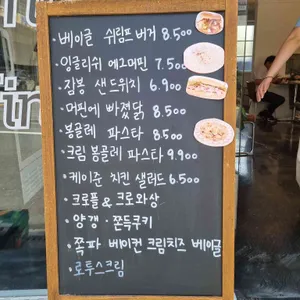 · 베이글 쉬림프 버거 8.500
· 잉글리쉬 에그머핀 7.500
· 잠봉 샌드위치 6.900
· 머핀에 빠졌닭 8.500
· 봉골레 파스타 8.500
· 크림 봉골레 파스타 9.900
· 케이준 치킨 샐러드 6.500
· 크로플 & 크로와상
· 양갱 · 쫀득쿠키
· 쪽파 베이컨 크림치즈 베이글
· 로투스크림